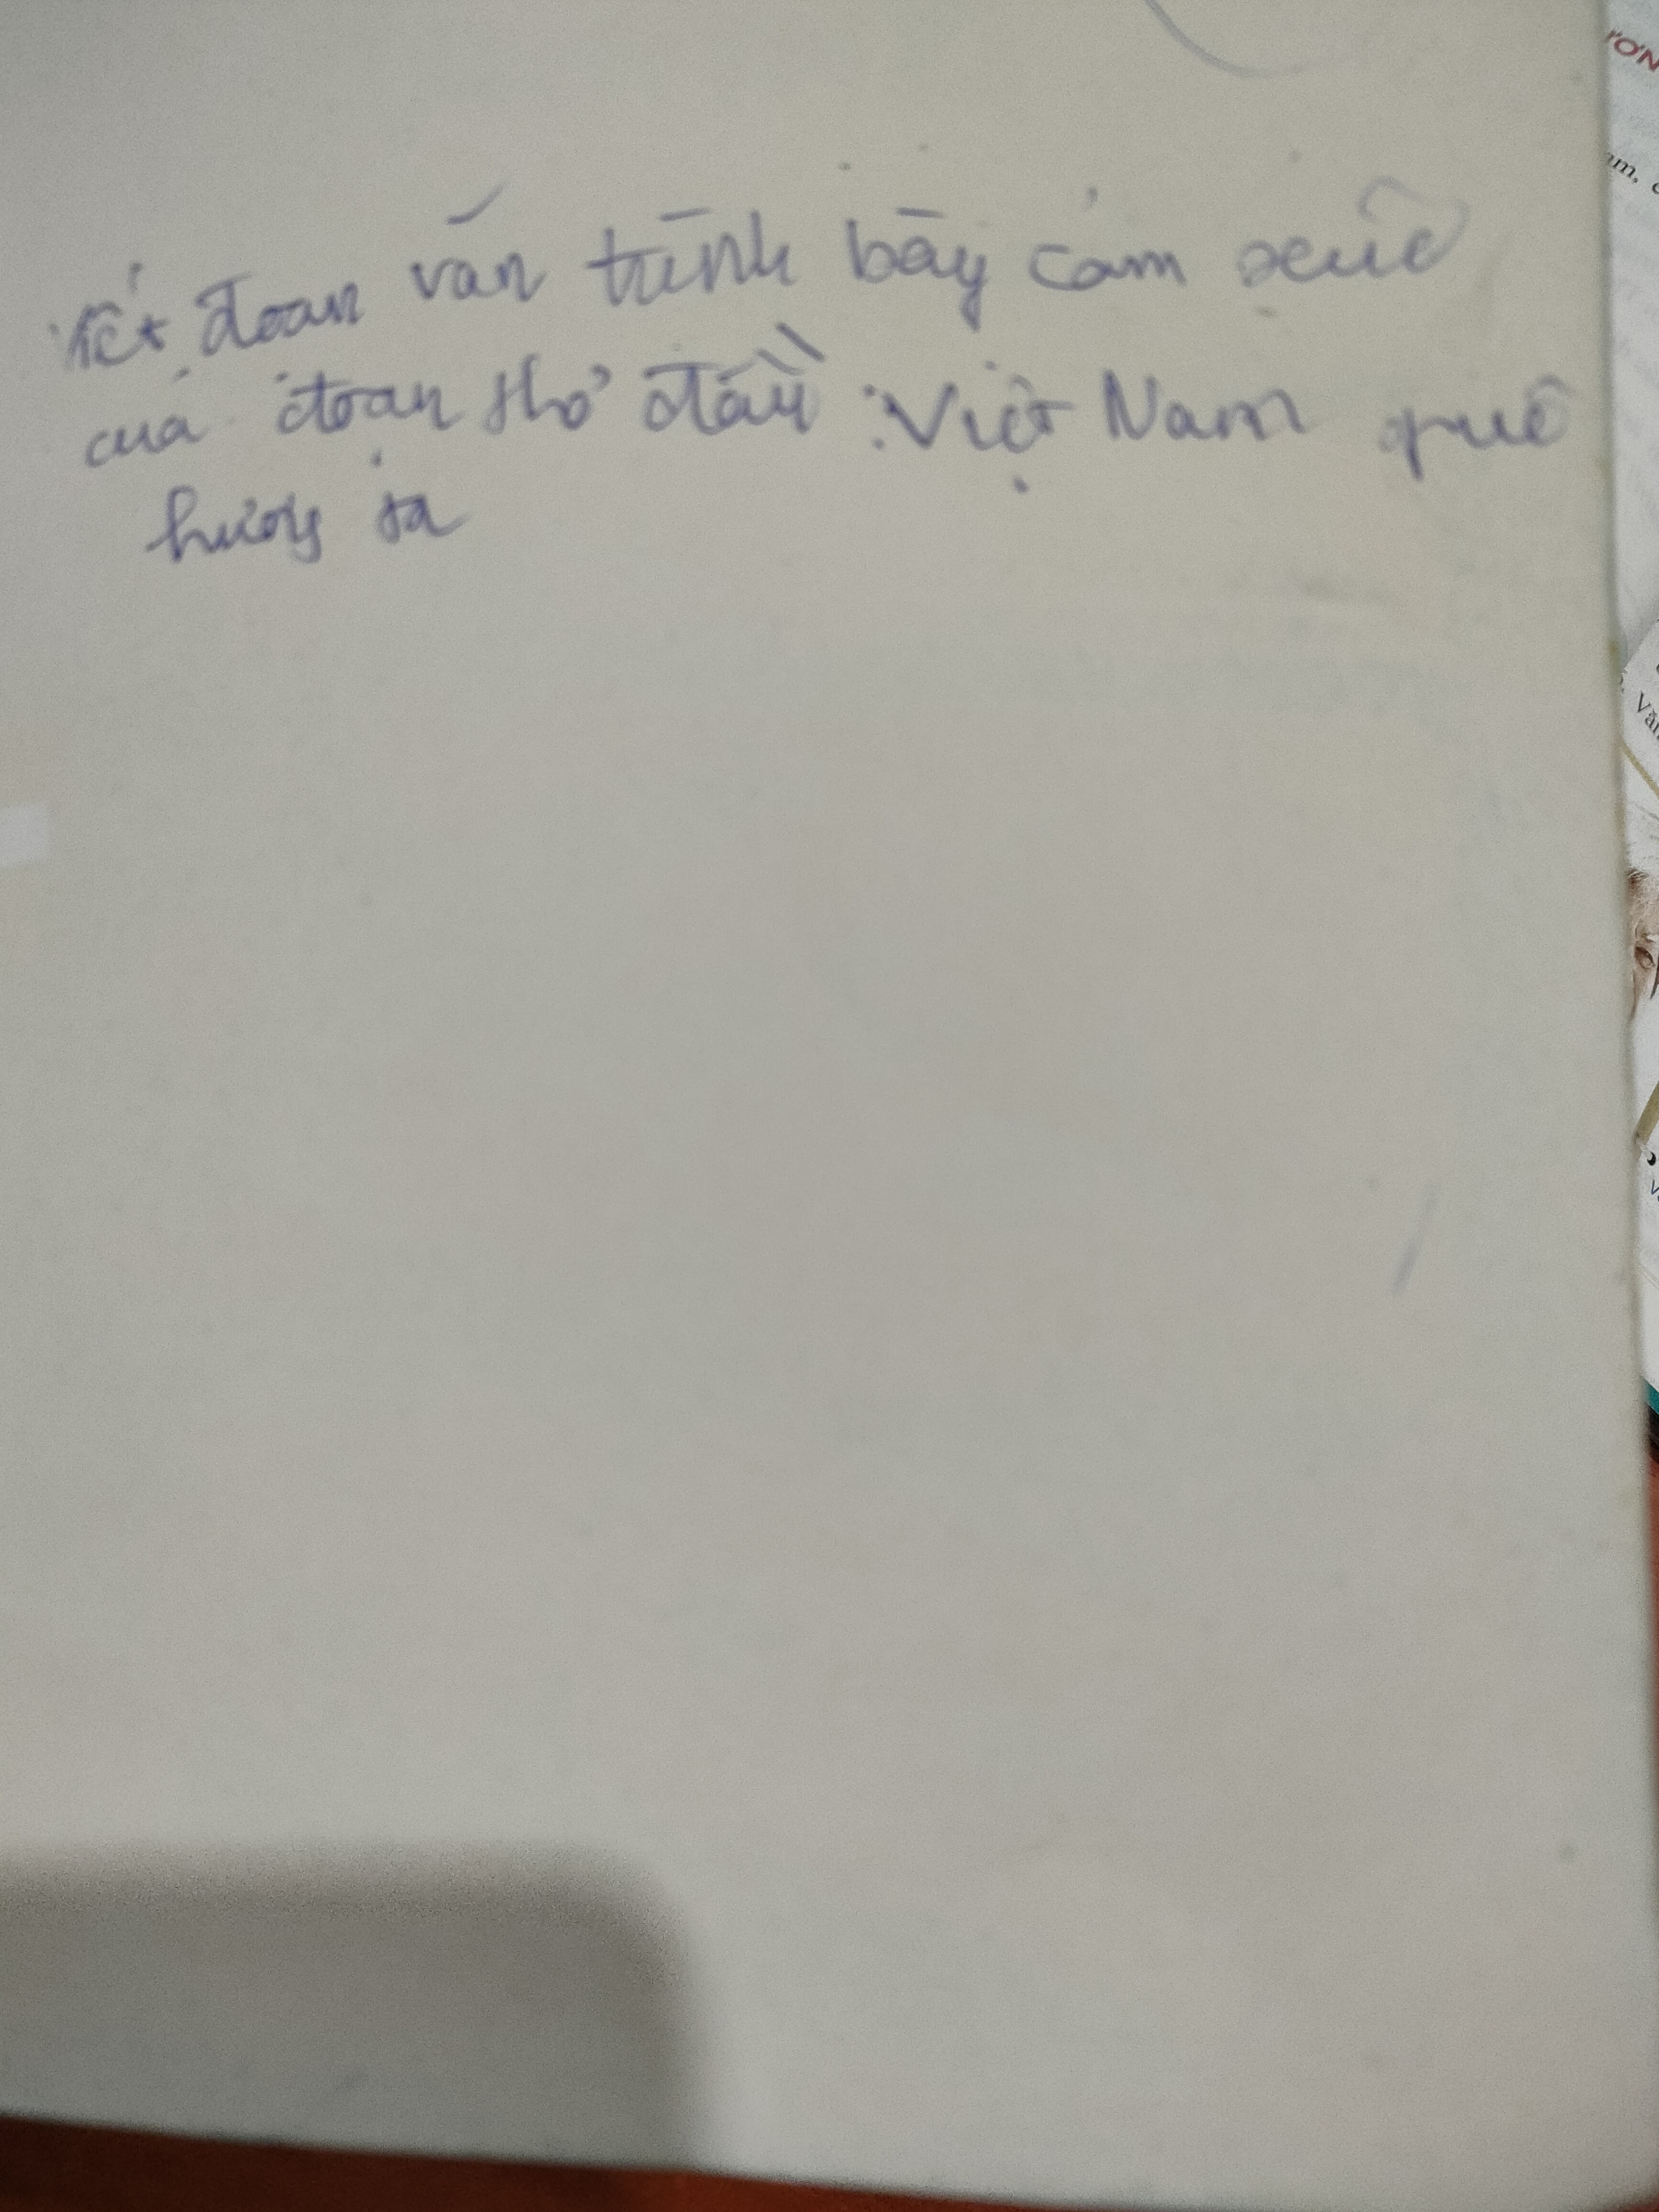 Viết đoạn văn trình bày cảm xúc
của đoạn thơ đầu : Việt Nam quê
hương ta
ƠN
Văn